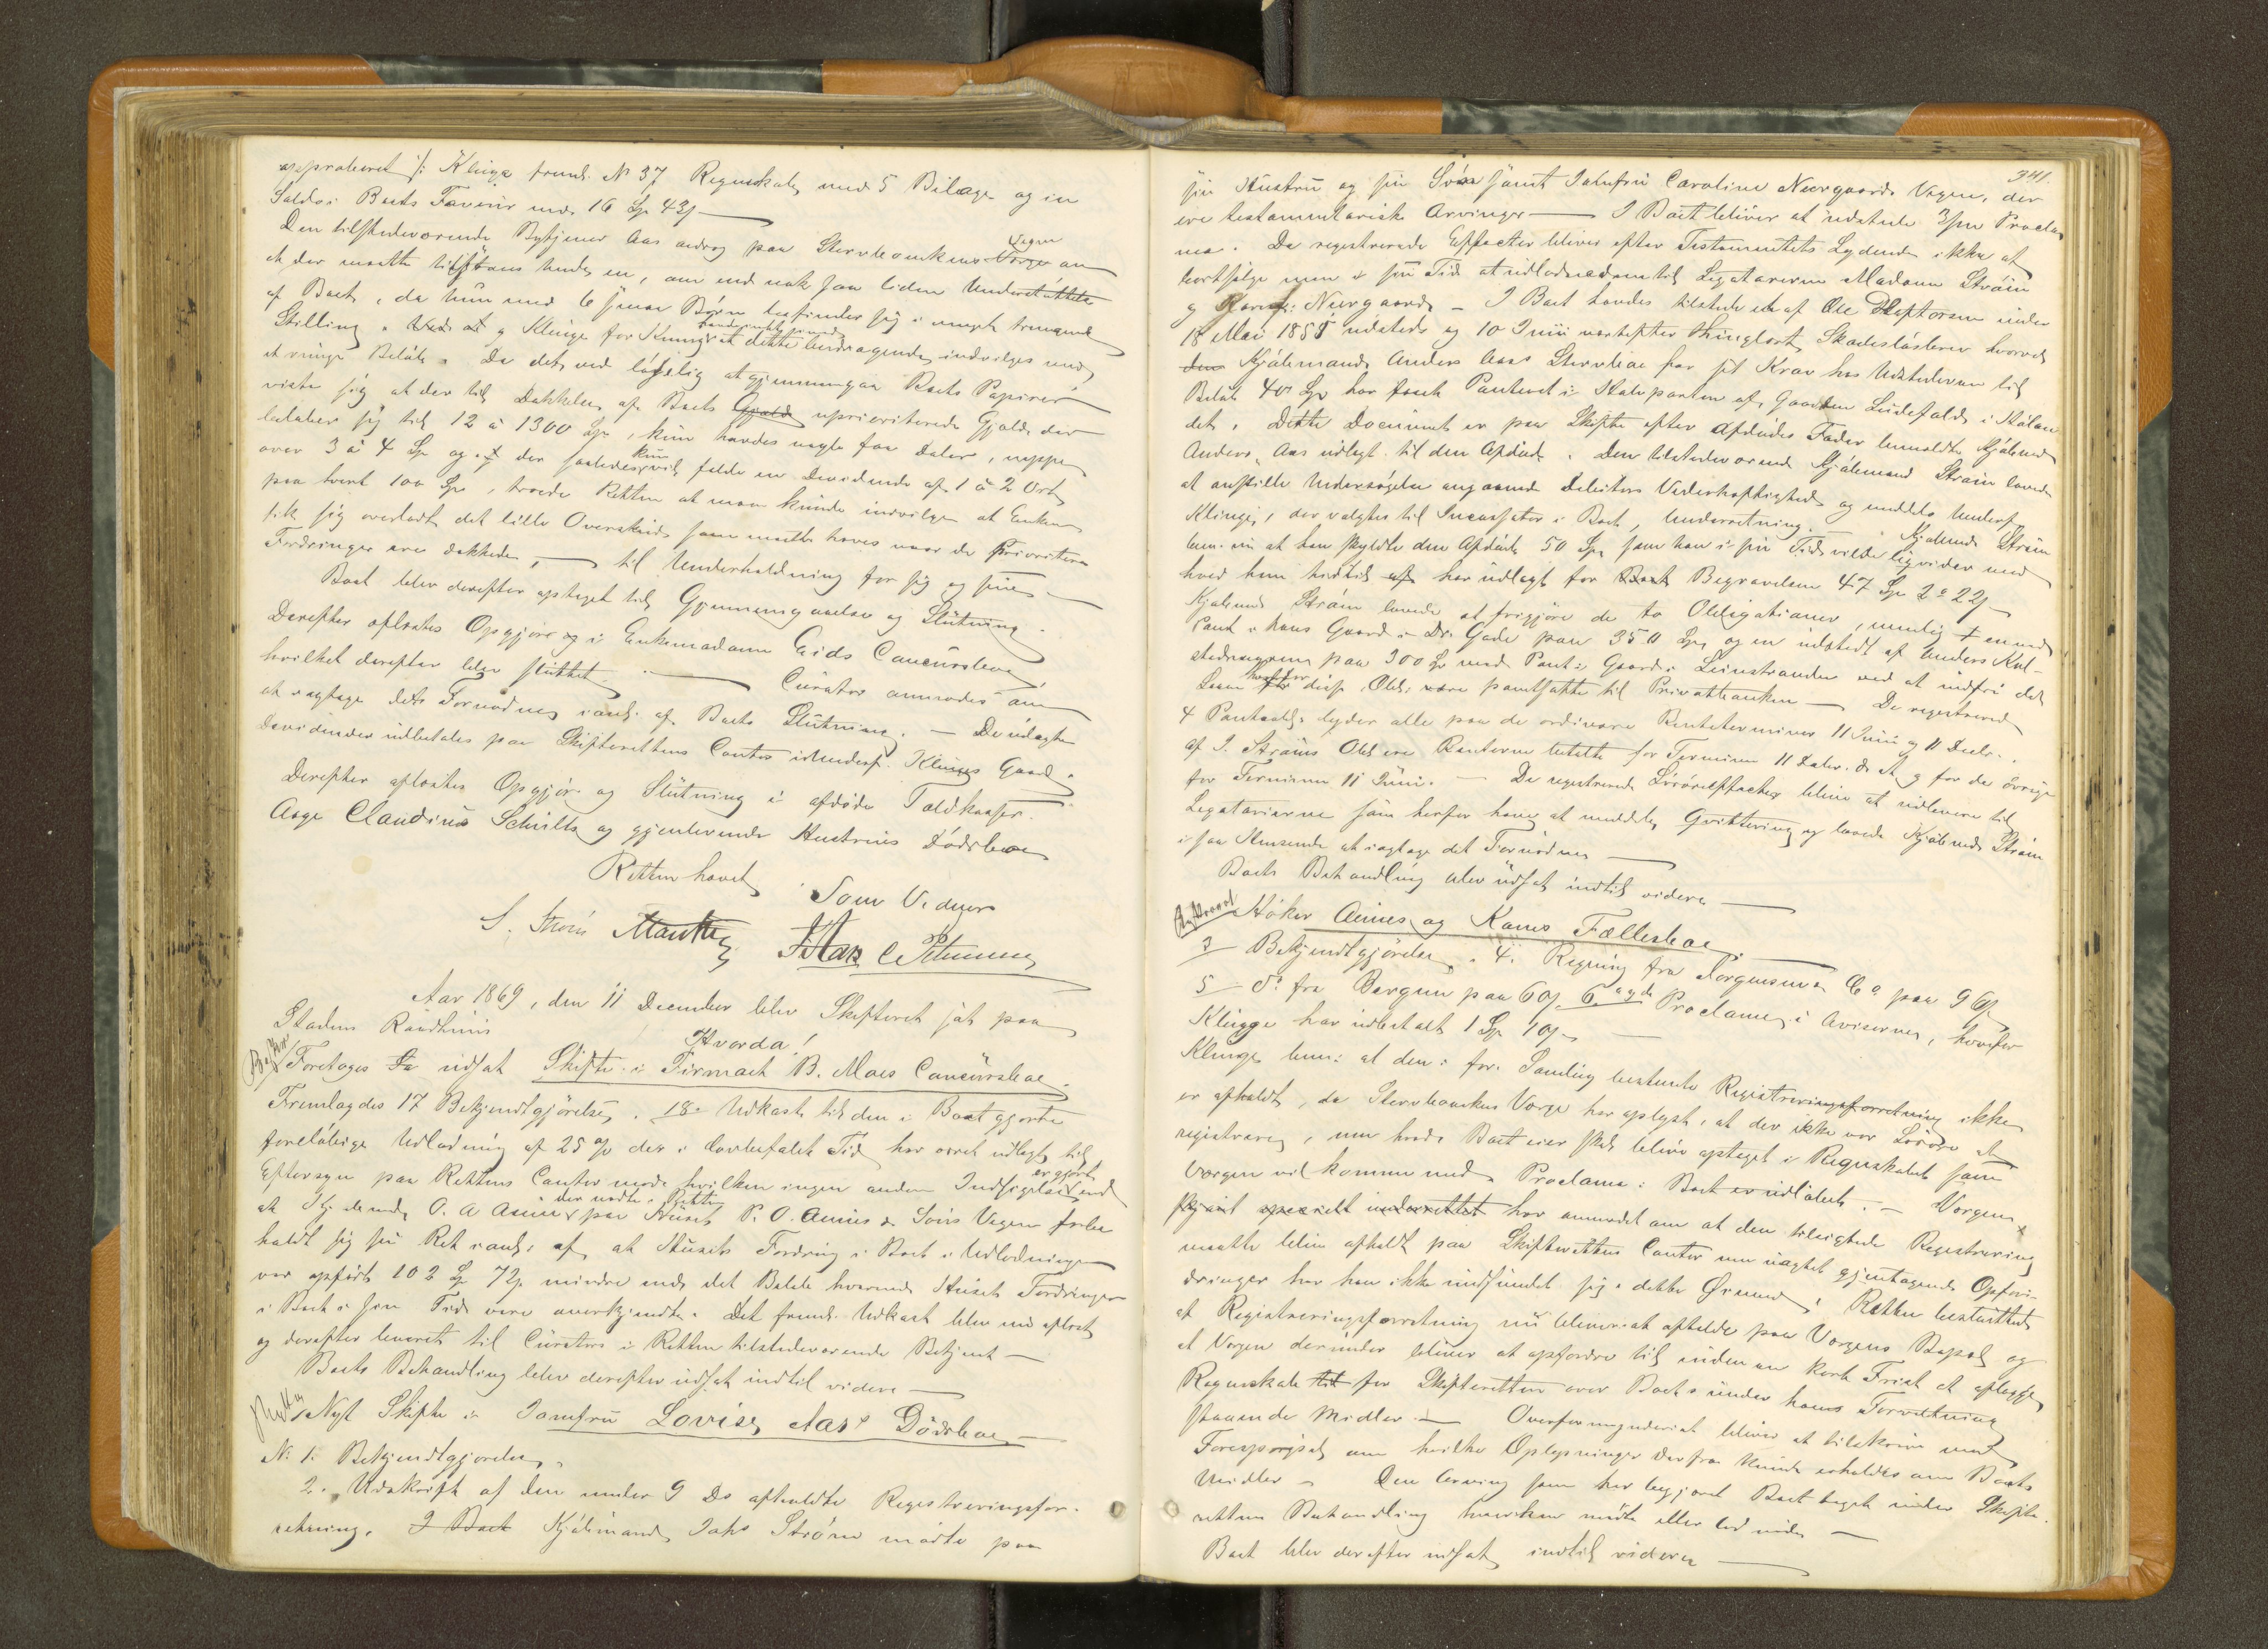 approberet /: Klinge freml. No 37 Regnskab med 5 Bilage og en
Saldo i Boets Faveur med 16 Sp 43 s —
Den tilstedeværende Bytjener Aas androg paa Stervboenkens Vegne om
at der maatte tilstaaes hende en, om end nok saa liden Understøttelse
af Boet, da hun med 6 smaa Børn befinder sig i meget trængende
Stilling.
et ringe Beløb. Da det, ved løselig at gjennemgaa Boets Papirer
viste sig at der til Dækkelse af Boets Gjæld uprioriterede Gjæld, der
beløber sig til 12 à 1300 Sp, kun havdes nogle faa Daler, neppe
over 3 à 4 Sp og at der saaledes kun vil falde en Devidende af 1 à 2 Ort
paa hvert 100 Sp, troede Retten at man kunde indvilge at Enken
fik sig overladt det lille Overskud som maatte haves naar de prioriterede
Fordringer ere dækkede, — til Underholdning for sig og sine —
Boet blev derefter optaget til Gjennemgaaelse og Slutning.
Derefter oplæstes Opgjør i Enkemadame Eids Concursbo,
hvilket derefter blev sluttet. — Curator anmodes om
at iagttage det Fornødne i anl. af Boets Slutning. — De udlagte
Devidender udbetales paa Skifterettens Contor i Klinges Gaard.
Derefter oplæstes Opgjør og Slutning i afdøde Toldkasser.
Aage Claudius Schultz og gjenlevende Hustrues Dødsboe
Retten hævet
Som Vidner
Aar 1869, den 11 December blev Skifteret sat paa
Stadens Raadhuus
Hvorda!
Foretoges udsat Skifte i Firmaet B. Moes Concursboe.
Fremlagdes 17 Bekjendtgjørelse. 18. Udkast til den i Boet gjorte
foreløbige Udlodning af 25 % der i lovbefalet Tid har været udlagt til
Eftersyn paa Rettens Contor mod hvilken ingen anden Indsigelse er gjort end
at Kjøbmd O. A der mødte i Retten paa Huset Søns Vegne forbe
holdt sig sin Ret i anl. af at Husets Fordring i Boet i Udlodningen
var opført 102 Sp 72 s mindre end det Beløb hvormed Husets Fordringer
i Boet i sin Tid vare anerkjendte. Det freml. Udkast blev nu oplæst
og derefter leveret til Curators i Retten tilstedeværende Betjent —
Boets Behandling blev derefter udsat indtil videre —
Nyt Skifte i Jomfru Lovise Aas' Dødsboe —
No 1. Bekjendtgjørelse.
2. Udskrift af den under 9 Ds afholdte Registreringsfor-
retning. I Boet Kjøbmand Jakob Strøm mødte paa
341.
sin Hustru og sin Søn samt Jomfru Caroline Neergaards Vegne, der
ere testamentariske Arvinger — I Boet bliver at udstede 3/m Procla
ma. De registrerede Effecter blive efter Testamentets Lydende ikke at
bortsælge men i sin Tid at udlodnedem til Legatarerne Madame Strøm
og Neergaard — I Boet havdes tilstede en af Ole under
18 Mai 1855 udstedt og 10 Juni næstefter thinglæst Skadesløsbrev hvorved
den Kjøbmand Anders Aas Stervboe for sit Krav hos Udstederen til
Beløb 40 Sp har faaet Panteret i Halvparten af Gaarden i
det. Dette Document er paa Skifte efter Afdødes Fader bemeldte Kjøbmd
Anders Aas udlagt til den Afdøde. Den tilstedeværende Kjøbmand Strøm lovede
at anstille Undersøgelse angaaende Debitors Vederheftighed og meddele
Klinge, der valgtes til Incassator i Boet, Underretning. — Kjøbmd Strøm
bem. nu at han skyldte den Afdøde 50 Sp som han i sin Tid vilde liqvidere med
hvad han hidtil har udlagt for Boet Begravelsen 47 Sp 2 o 22 s —
Kjøbmd Strøm lovede at frigjøre de to Obligationer, nemlig 1 en med
Pant i hans Gaard i Dr. Gade paa 350 Sp og en udstedt af Anders Kal-
paa 300 Sp med Pant i Gaard i Leinstranden ved at indfri det
Laan hvorfor disse Obl. ere pantsatte til Privatbanken — De registrered
4 Pantobl. lyder alle paa de ordinære Rentetermine 11 Juni og 11 Decbr.
af J. Strøms Obl ere Renterne betalte for Terminen 11 Decbr. d. A. og for de øvrige
for Terminen 11 Juni. — De registrerede Løsøreeffecter blive at udlevere til
Legatarierne som herfor have at meddele Qvittering og lovede Kjøbmd Strøm
i saa Henseende at iagttage det Fornødne —
Boets Behandling blev udsat indtil videre —
Høker Aunes og Kones Fællesboe
3 Bekjendtgjørelse. 4. Regning fra Jørgensen & Co paa 96 s
5 do fra Bergum paa 60 s 6 Proclama i Aviserne, hvorfor
Klinge har udbetalt 1 Sp 10 s —
Klinge bem. at den i for. Samling bestemte Registreringsforretning ikke
er afholdt, da Stervboenkens Værge har oplyst, at der ikke var Løsøre at
registrere, men hvad Boet eier skal blive optaget i Regnskabet som
Værgen vil komme med Proclama i Boet er udløbet. — Værgen
har anmodet om at den bleigtede Registrering
maatte blive afholdt paa Skifterettens Contor men uagtet gjentagende Opfor-
dringer har han ikke indfundet sig i dette Øiemed. Retten besluttede
at Registreringsforretning nu bliver at afholde paa Værgens Bopæl og
at Værgen derunder bliver at opfordre til inden en kort Frist at aflægge
Regnskab til for Skifteretten over Boets under hans Forvaltning
staaende Midler. — Overformynderiet bliver at tilskrive med
Forespørgsel om hvilke Oplysninger derfra kunde erholdes om Boets
Midler — Den Arving som har begjæret Boet taget under Skifte-
rettens Behandling hverken mødte eller lod møde —
Boet blev derefter udsat indtil videre —